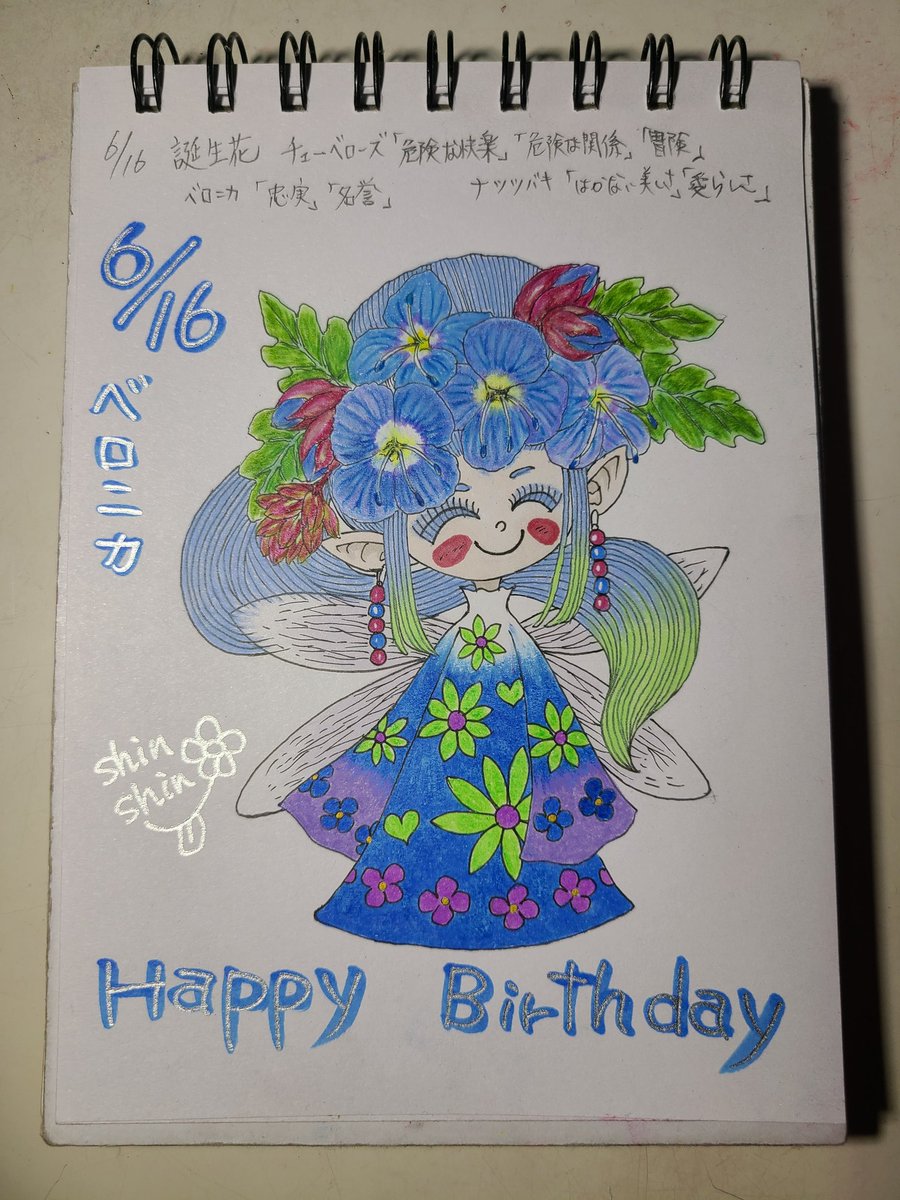 6/16 誕生花 チューベローズ「危険な快楽」「危険な関係」「冒険」
ベロニカ「忠実」「名誉」 ナツツバキ「はかない美しさ」「愛らしさ」
6/16
ベロニカ
shin
shin
Happy Birthday